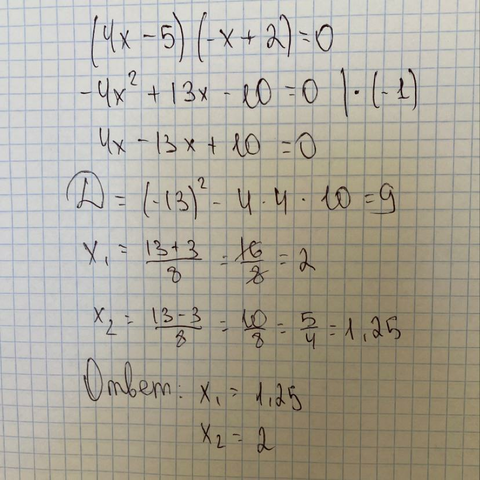 (4x - 5)(-x + 2) = 0
-4x² + 13x - 10 = 0 | · (-1)
4x - 13x + 10 = 0
D = (-13)² - 4 · 4 · 10 = 9
x₁ = 13+3/8 = 16/8 = 2
x₂ = 13-3/8 = 10/8 = 5/4 = 1,25
Ответ: x₁ = 1,25
x₂ = 2